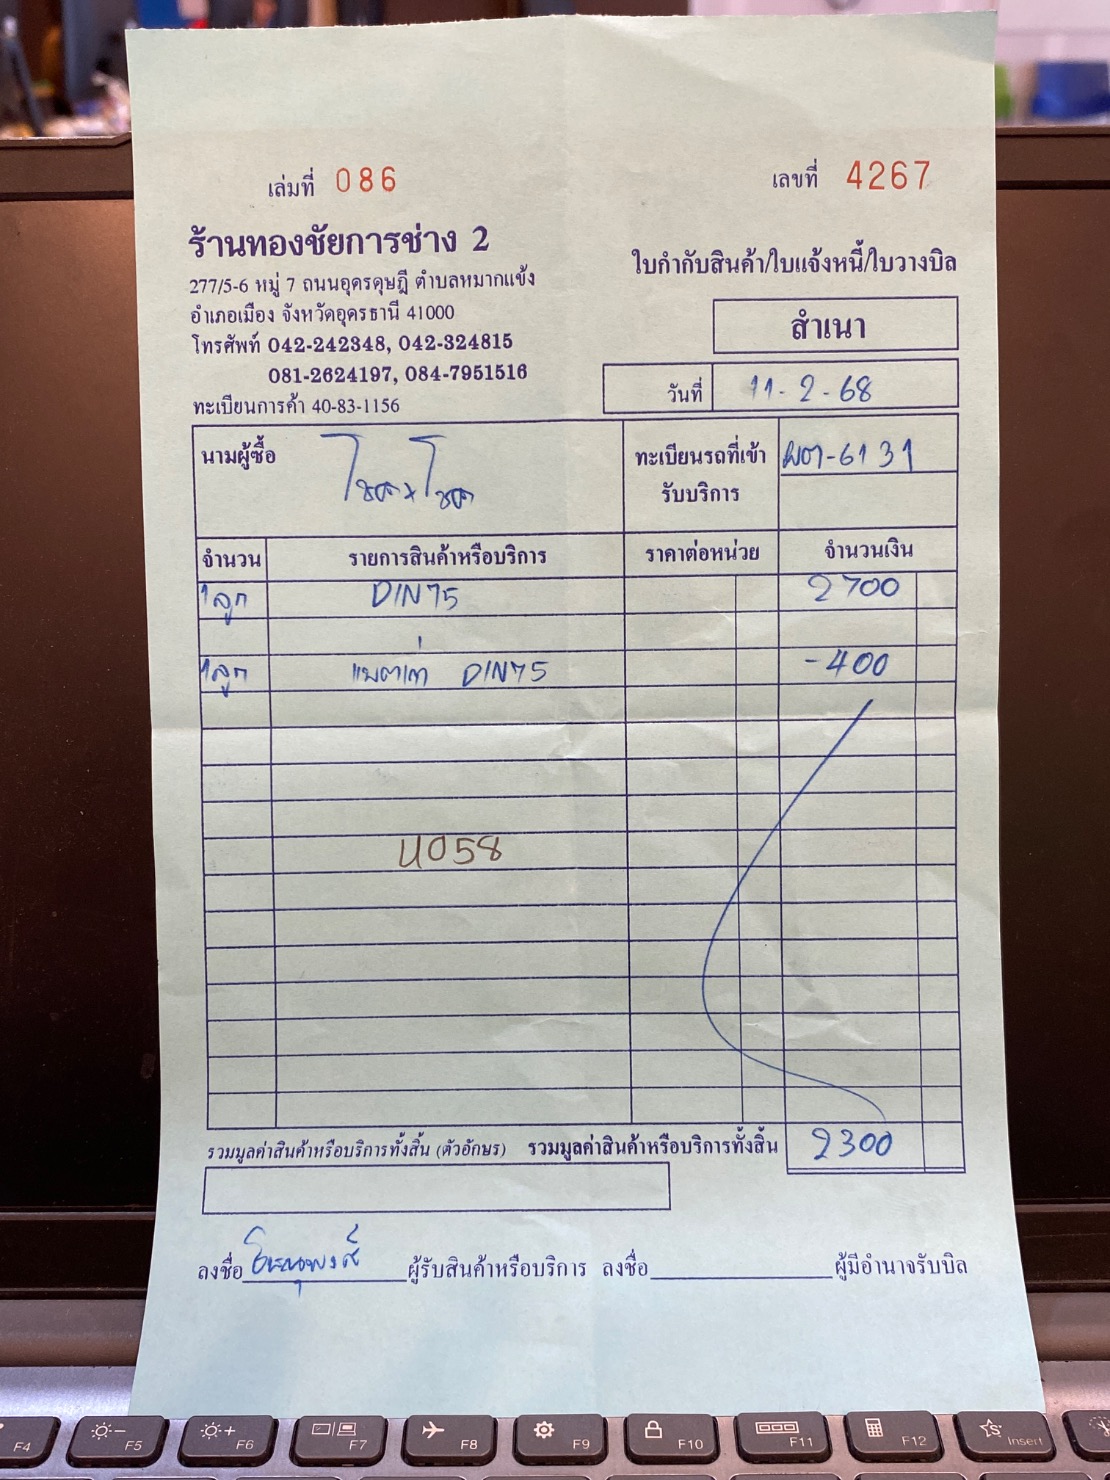 เล่มที่ 086
เลขที่ 4267
ร้านทองชัยการช่าง 2
277/5-6 หมู่ 7 ถนนอุดรดุษฎี ตำบลหมากแข้ง
อำเภอเมือง จังหวัดอุดรธานี 41000
โทรศัพท์ 042-242348, 042-324815
081-2624197, 084-7951516
ทะเบียนการค้า 40-83-1156
ใบกำกับสินค้า/ใบแจ้งหนี้/ใบวางบิล
สำเนา
วันที่ 11-2-68
นามผู้ซื้อ
ทะเบียนรถที่เข้ารับบริการ 6131
จำนวน รายการสินค้าหรือบริการ ราคาต่อหน่วย จำนวนเงิน
1ลูก DIN75 2700
1ลูก แบตเก่า DIN75 -400
U058
รวมมูลค่าสินค้าหรือบริการทั้งสิ้น (ตัวอักษร) รวมมูลค่าสินค้าหรือบริการทั้งสิ้น 2300
ลงชื่อ ผู้รับสินค้าหรือบริการ ลงชื่อ ผู้มีอำนาจรับบิล
F4 F5 F6 F7 F8 F9 F10 F11 F12 Insert